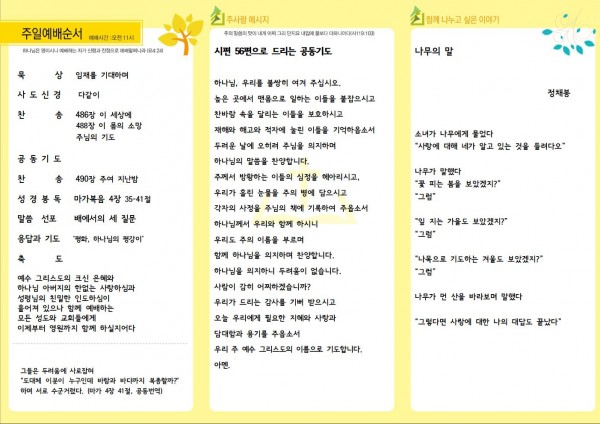 주일예배순서 예배시간 : 오전 11시
하나님은 영이시니 예배하는 자가 신령과 진정으로 예배할찌니라 (요4:24)
묵 상 임재를 기대하며
사 도 신 경 다같이
찬 송 486장 이 세상에
488장 이 몸의 소망
주님의 기도
공 동 기 도
찬 송 490장 주여 지난밤
성 경 봉 독 마가복음 4장 35-41절
말씀 선포 배에서의 세 질문
응답과 기도 '평화, 하나님의 평강이'
축 도
예수 그리스도의 크신 은혜와
하나님 아버지의 한없는 사랑하심과
성령님의 친밀한 인도하심이
흩어져 있으나 함께 예배하는
모든 성도와 교회들에게
이제부터 영원까지 함께 하실지어다
그들은 두려움에 사로잡혀
"도대체 이분이 누구인데 바람과 바다까지 복종할까?"
하며 서로 수군거렸다. (마가 4장 41절, 공동번역)
주사랑 메시지
주의 말씀의 맛이 내게 어찌 그리 단지요 내입에 꿀보다 더하니이다(시119:103)
시편 56편으로 드리는 공동기도
하나님, 우리를 불쌍히 여겨 주십시오.
높은 곳에서 맨몸으로 일하는 이들을 붙잡으시고
찬바람 속을 달리는 이들을 보호하시고
재해와 해고와 적자에 눌린 이들을 기억하옵소서
두려운 날에 오히려 주님을 의지하며
하나님의 말씀을 찬양합니다.
주께서 방황하는 이들의 심정을 헤아리시고,
우리가 흘린 눈물을 주의 병에 담으시고
각자의 사정을 주님의 책에 기록하여 주옵소서
하나님께서 우리와 함께 하시니
우리도 주의 이름을 부르며
함께 하나님을 의지하며 찬양합니다.
하나님을 의지하니 두려움이 없습니다.
사람이 감히 어찌하겠습니까?
우리가 드리는 감사를 기뻐 받으시고
오늘 우리에게 필요한 지혜와 사랑과
담대함과 용기를 주옵소서
우리 주 예수 그리스도의 이름으로 기도합니다.
아멘.
함께 나누고 싶은 이야기
나무의 말
정채봉
소녀가 나무에게 물었다
"사랑에 대해 네가 알고 있는 것을 들려다오"
나무가 말했다
"꽃 피는 봄을 보았겠지?"
"그럼"
"잎 지는 가을도 보았겠지?"
"그럼"
"나목으로 기도하는 겨울도 보았겠지?"
"그럼"
나무가 먼 산을 바라보며 말했다
"그렇다면 사랑에 대한 나의 대답도 끝났다"